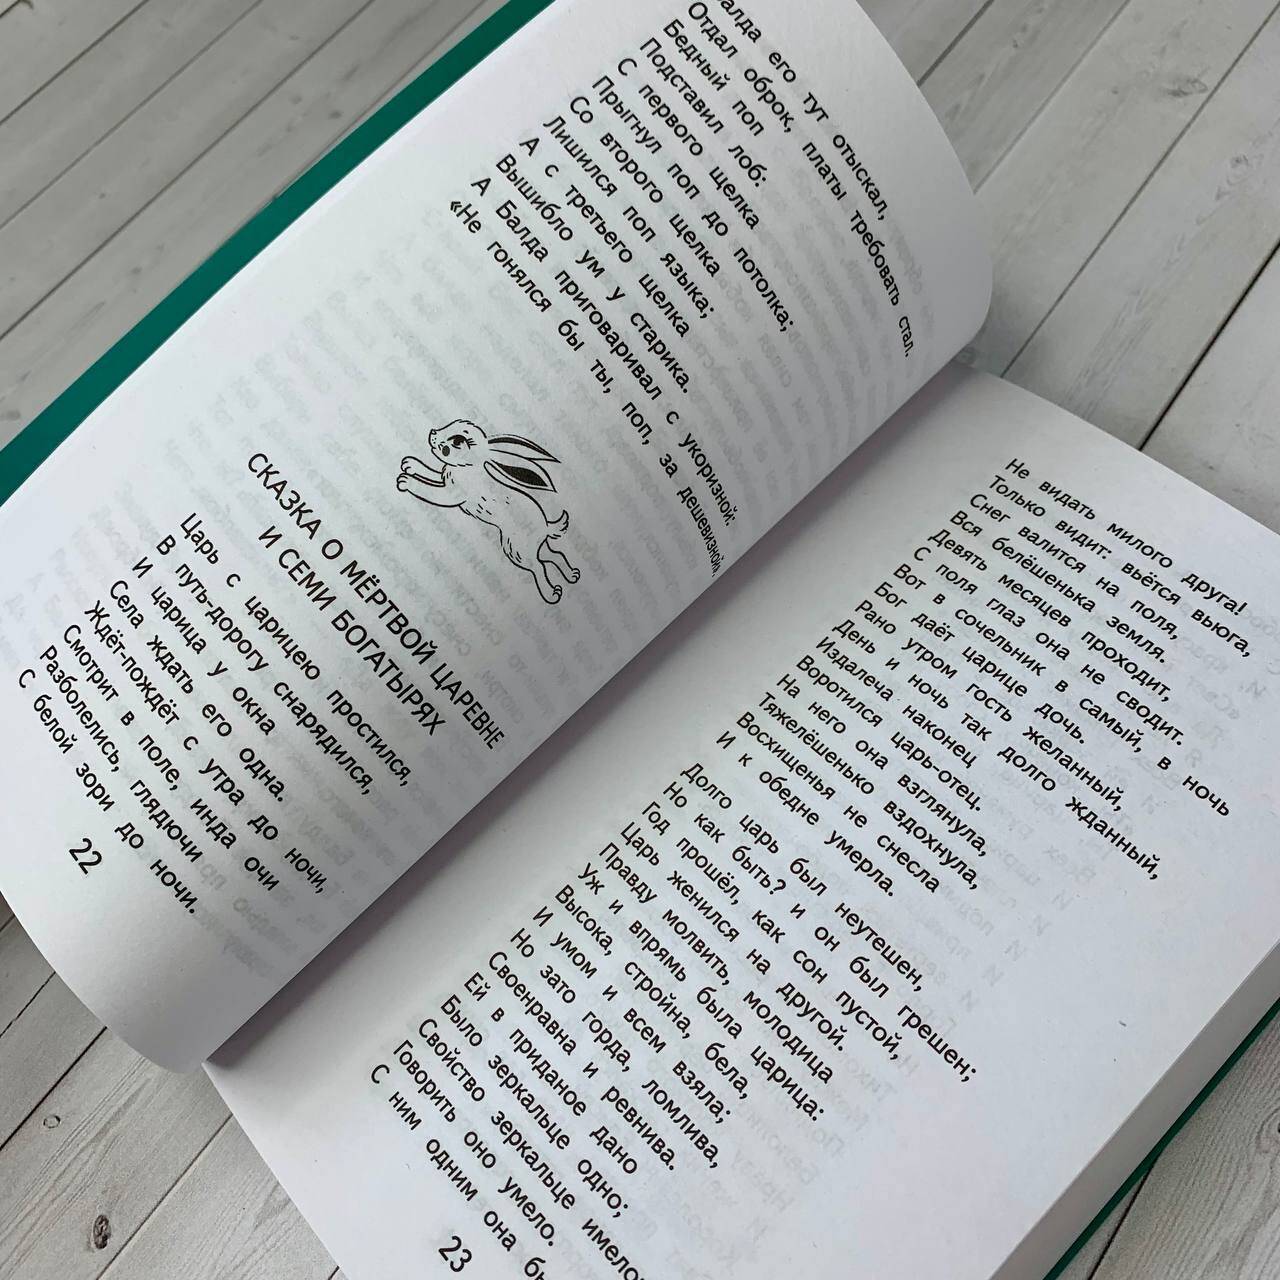 Балда его тут отыскал,
Отдал оброк, платы требовать стал.
Бедный поп
Подставил лоб:
С первого щелка
Прыгнул поп до потолка;
Со второго щелка
Лишился поп языка;
А с третьего щелка
Вышибло ум у старика.
А Балда приговаривал с укоризной:
«Не гонялся бы ты, поп, за дешевизной».
СКАЗКА О МЁРТВОЙ ЦАРЕВНЕ
И СЕМИ БОГАТЫРЯХ
Царь с царицею простился,
В путь-дорогу снарядился,
И царица у окна
Села ждать его одна.
Ждёт-пождёт с утра до ночи,
Смотрит в поле, инда очи
Разболелись, глядючи
С белой зори до ночи.
22
Не видать милого друга!
Только видит: вьётся вьюга,
Снег валится на поля,
Вся белёшенька земля.
Девять месяцев проходит,
С поля глаз она не сводит.
Вот в сочельник в самый, в ночь
Бог даёт царице дочь.
Рано утром гость желанный,
День и ночь так долго жданный,
Издалеча наконец
Воротился царь-отец.
На него она взглянула,
Тяжелёшенько вздохнула,
Восхищенья не снесла
И к обедне умерла.
Долго царь был неутешен,
Но как быть? и он был грешен;
Год прошёл, как сон пустой,
Царь женился на другой.
Правду молвить, молодица
Уж и впрямь была царица:
Высока, стройна, бела,
И умом и всем взяла;
Но зато горда, ломлива,
Своенравна и ревнива.
Ей в приданое дано
Было зеркальце одно;
Свойство зеркальце имело:
Говорить оно умело.
С ним одним она
23